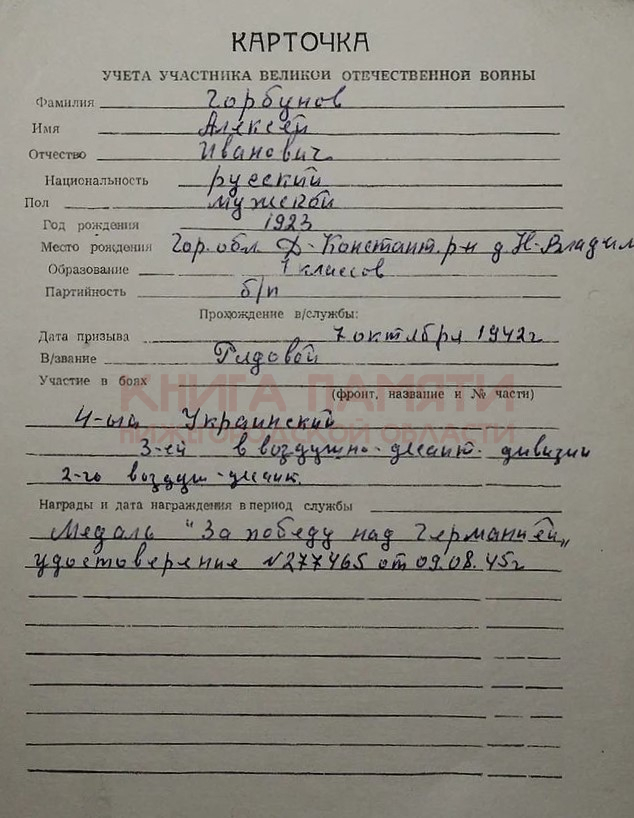 КАРТОЧКА
УЧЕТА УЧАСТНИКА ВЕЛИКОЙ ОТЕЧЕСТВЕННОЙ ВОЙНЫ
Фамилия Горбунов
Имя Алексей
Отчество Иванович
Национальность русский
Пол мужской
Год рождения 1923
Место рождения Гор. обл. Д-Констант. р-н д. Н-Владим
Образование 7 классов
Партийность б/п
Прохождение в/службы:
Дата призыва 7 октября 1942г
В/звание Рядовой
Участие в боях
(фронт, название и № части)
КНИГА ПАМЯТИ
НИЖЕГОРОДСКОЙ ОБЛАСТИ
4-ый Украинский
3-ей в воздушно-десант. дивизии
2-го воздуш-десанк.
Награды и дата награждения в период службы
Медаль "За победу над Германией"
удостоверение №277465 от 09.08.45г